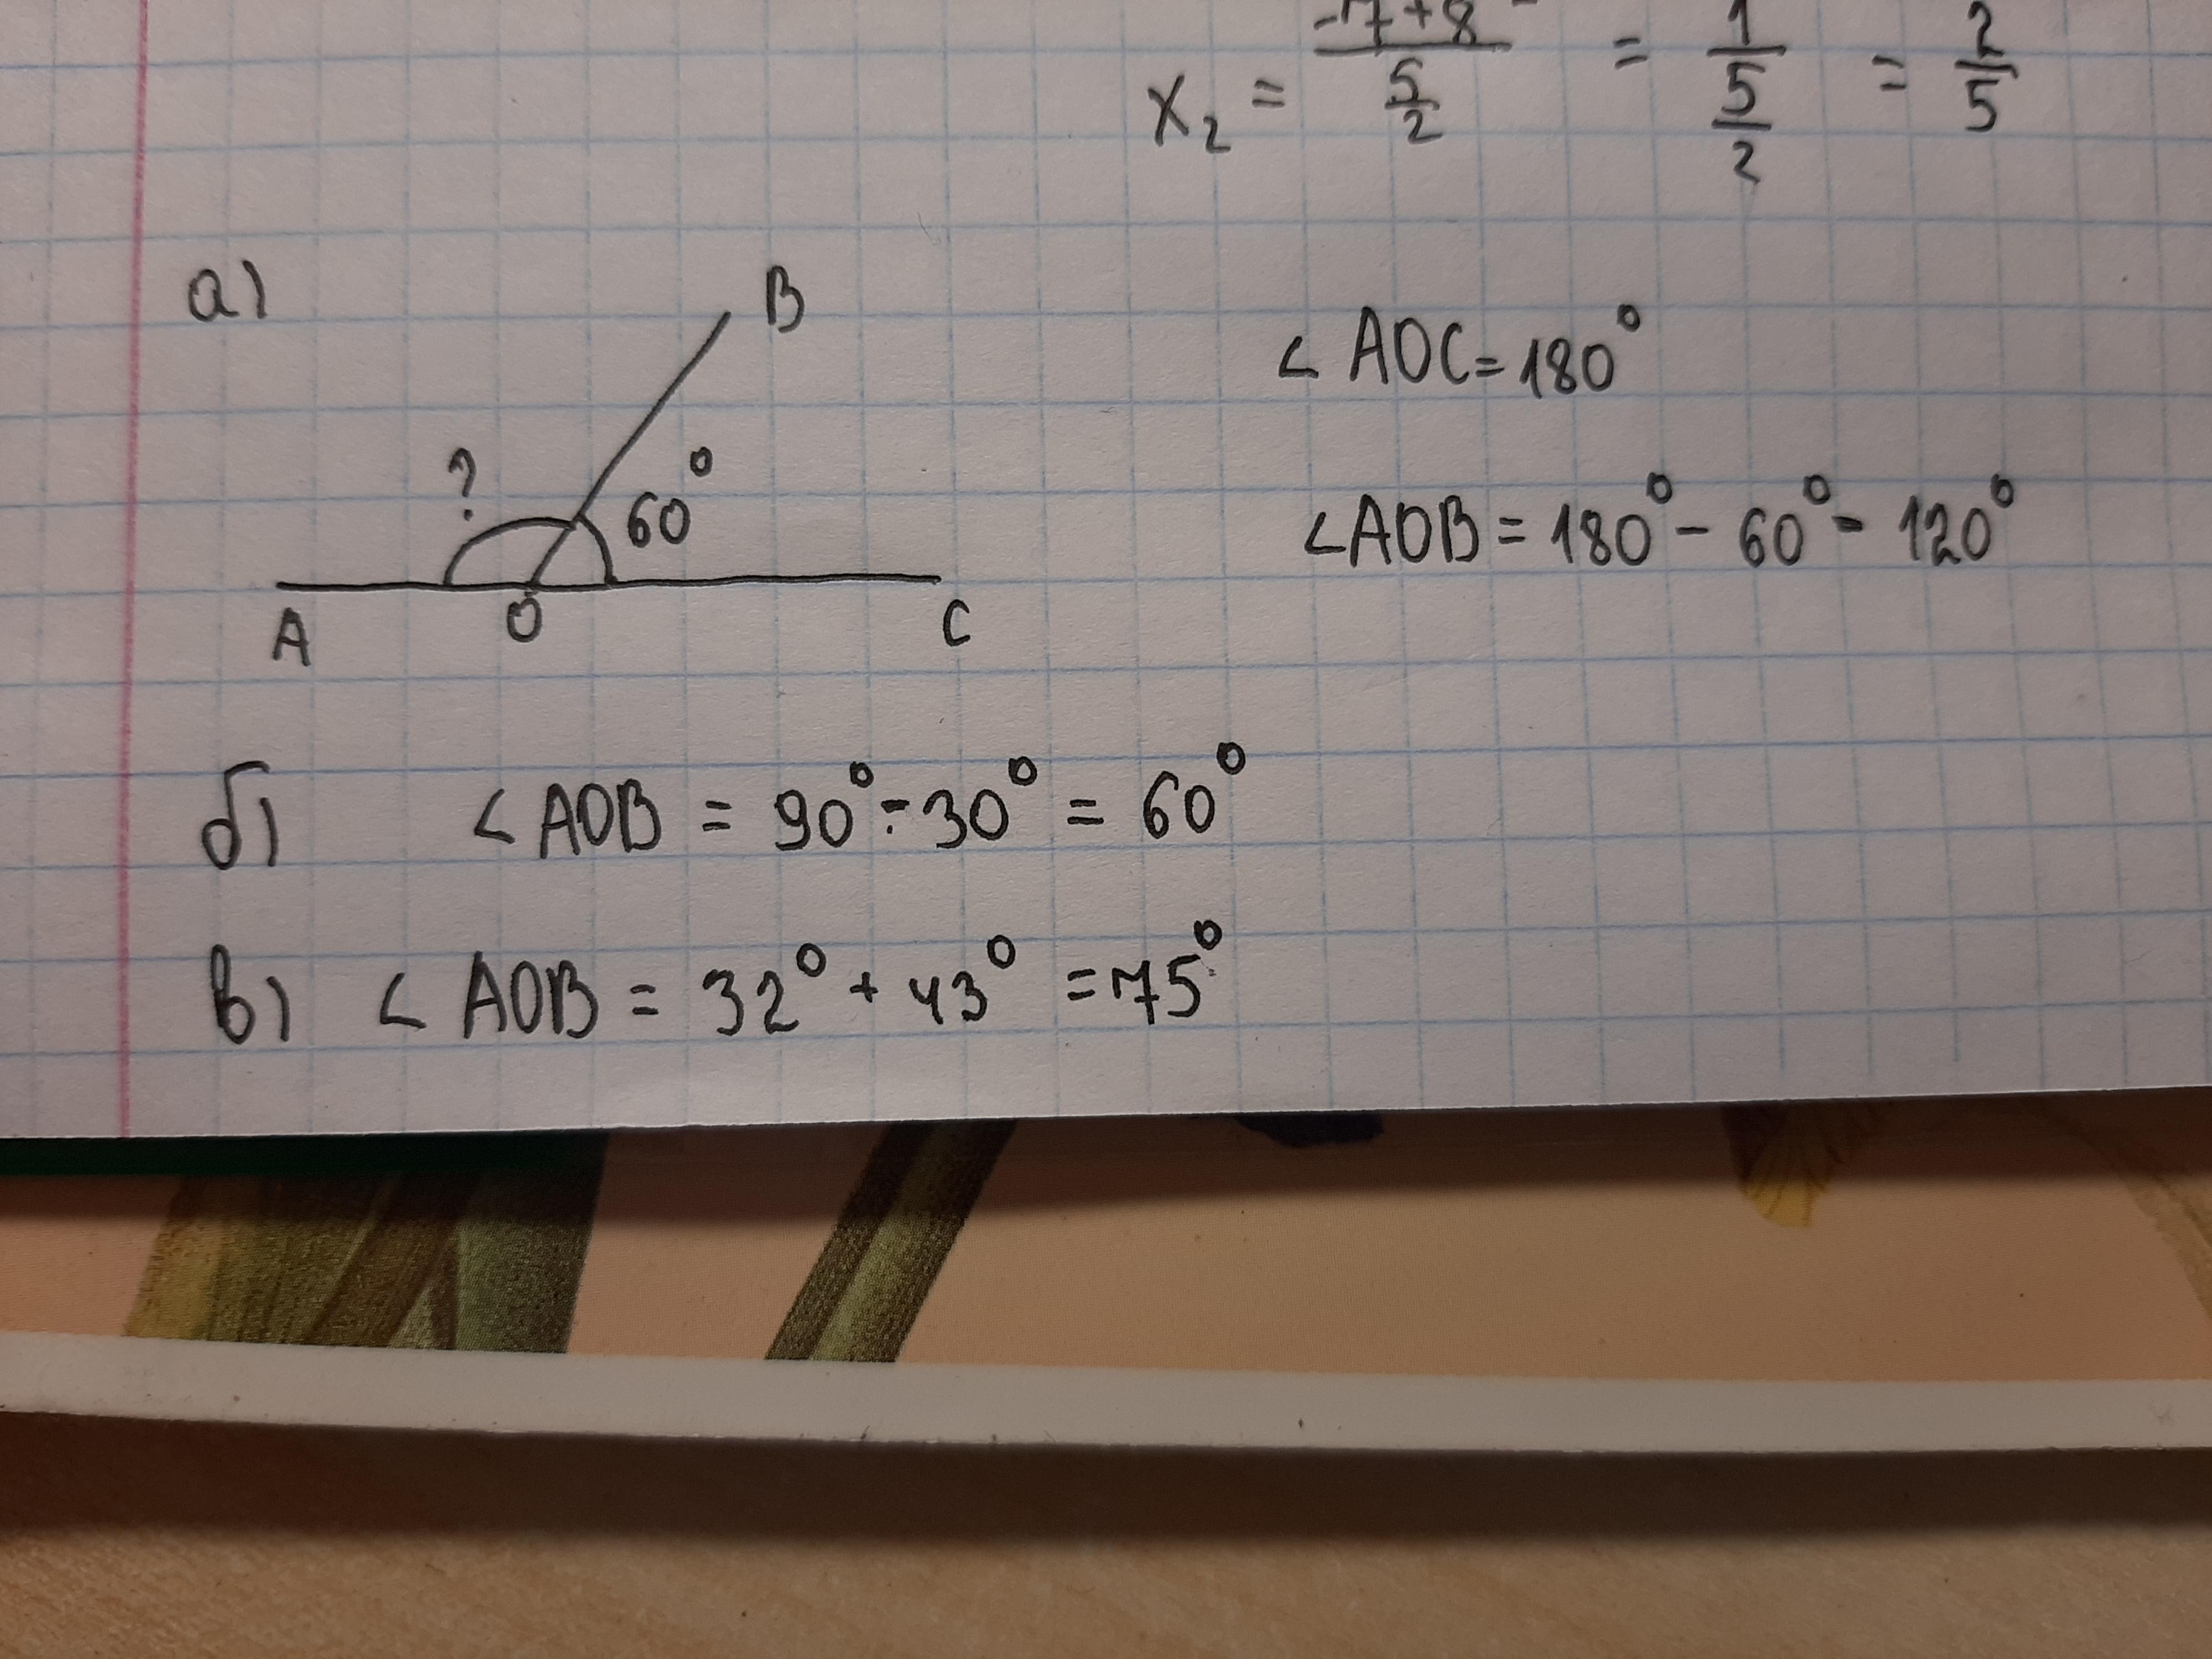 x₂ = (-7+8)/(5/2) = 1/(5/2) = 2/5
а)
B
∠ AOC = 180°
?
60°
∠AOB = 180° - 60° - 120°
A O C
б) ∠ AOB = 90° - 30° = 60°
в) ∠ AOB = 32° + 43° = 75°